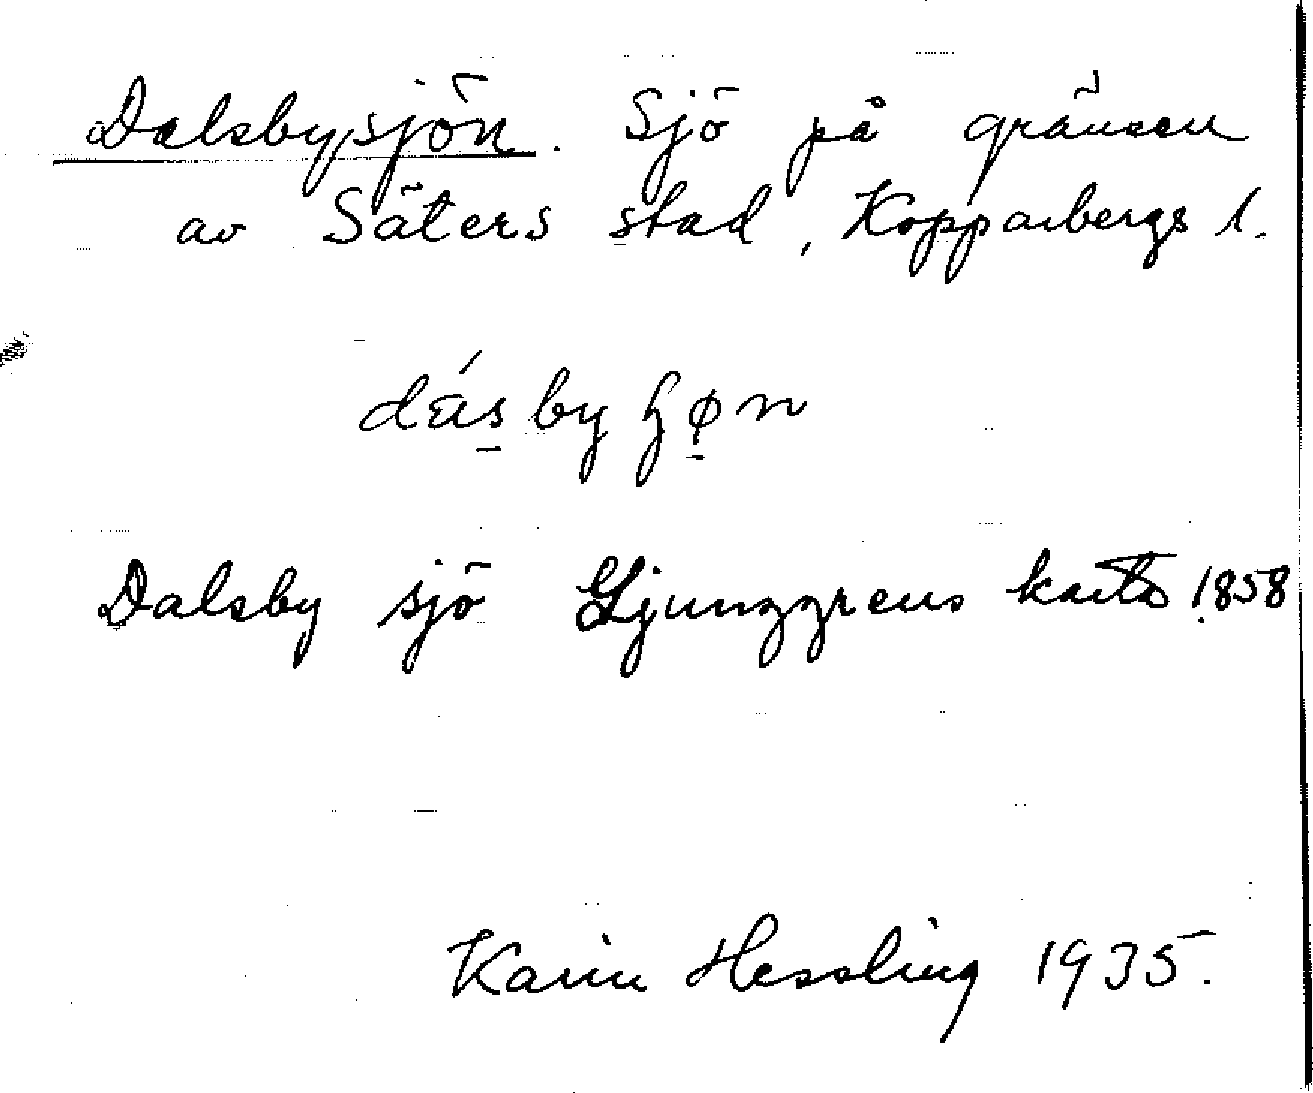 Dalsbysjön. Sjö på gränsen
av Säters stad, Kopparbergs l.
dás̱by ɧø̱n
Dalsby sjö Ljunggrens karta 1858
Karin Hessling 1935.